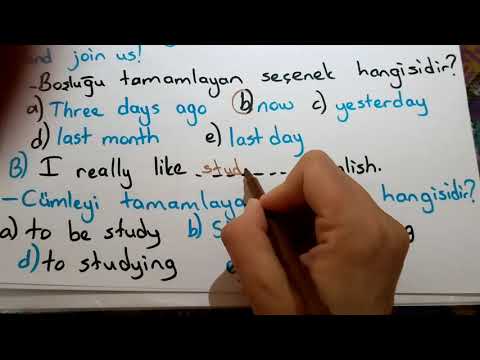 and join us!
-Boşluğu tamamlayan seçenek hangisidir?
a) Three days ago b) now c) yesterday
d) last month e) last day
B) I really like stud
-Cümleyi hangisidir?
a) to be study b)
d) to studying